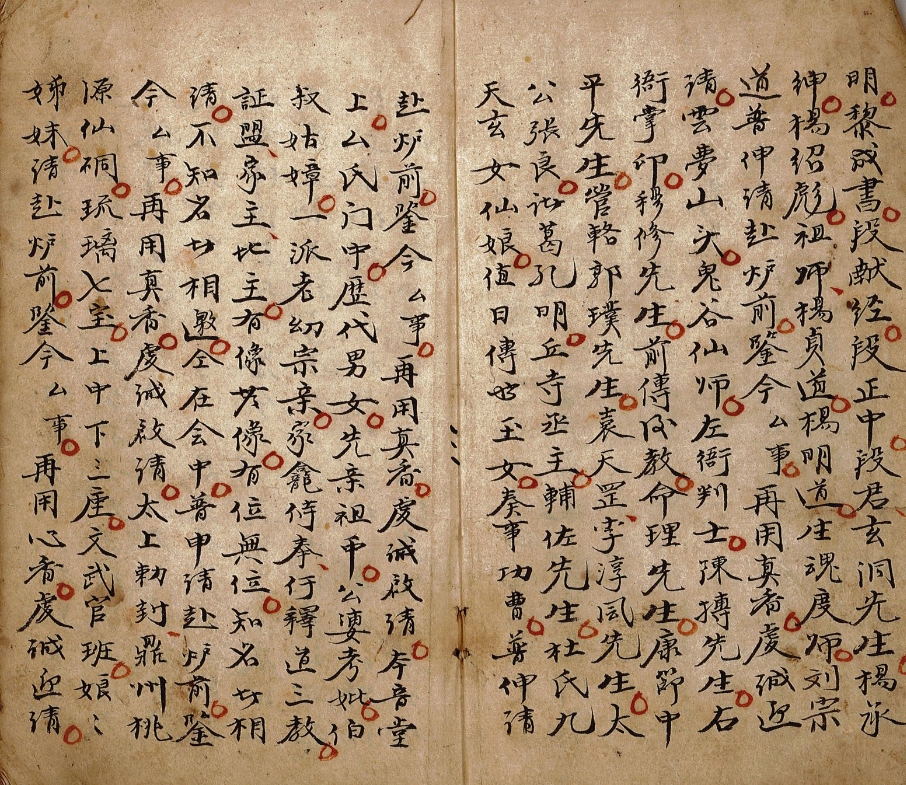 明黎成書段献经段正中段君玄洞先生楊承
紳楊绍彪祖师楊貞道楊明道生魂度师刘宗
道普伸请赴炉前鉴今厶事再用真香虔诚迎
请雲夢山头鬼谷仙师左衙判士陳摶先生右
衙掌印穆修先生前傳後教命理先生康節中
平先生管輅郭璞先生袁天罡李淳風先生太
公張良諸葛孔明丘寺丞主輔佐先生杜氏九
天玄女仙娘值日傳世玉女奏事功曹普伸请
赴炉前鉴今厶事再用真香虔诚啟请夲音堂
上厶氏门中歷代男女先亲祖千公婆考妣伯
叔姑嫜一派老幼宗亲家龛侍奉行釋道三教
証盟家主比主有像無像有位無位知名切相
请不知名切相邀仝在会中普申请赴炉前鉴
今厶事再用真香虔诚啟请太上勅封鼎州桃
源仙硐琉璃七宝上中下三座文武官班娘〻
姊妹请赴炉前鉴今厶事再用心香虔诚迎请